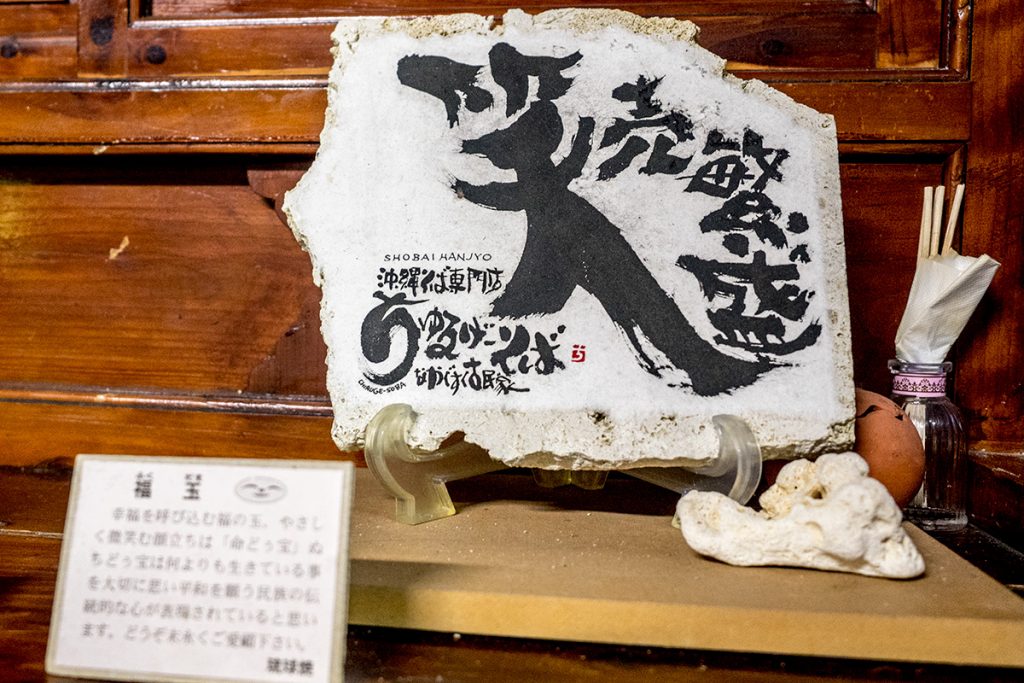 笑売繁盛
SHOBAI HANJYO
沖縄そば専門店
うちゅるげーそば
OURUGE-SOBA
福 玉
幸福を呼び込む福の玉。やさし
く微笑む顔立ちは「命どぅ宝」ぬ
ちどぅ宝は何よりも生きている事
を大切に思い平和を願う民族の伝
統的な心が表現されていると思い
ます。どうぞ末永くご愛顧下さい。
琉球焼